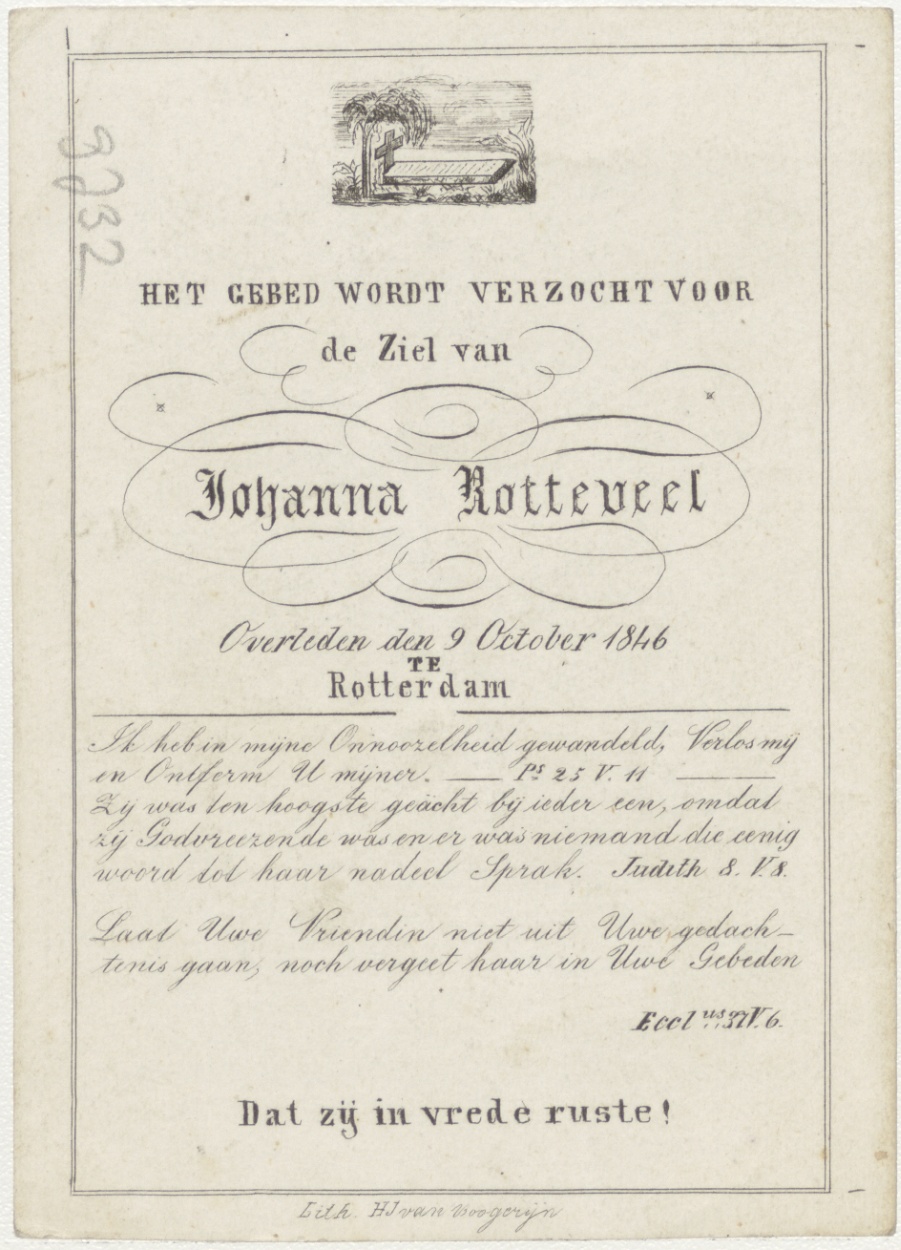 3932
HET GEBED WORDT VERZOCHT VOOR
de Ziel van
Johanna Rotteveel
Overleden den 9 October 1846
TE
Rotterdam
Ik heb in mijne Onnoozelheid gewandeld, Verlos mij
en Ontferm U mijner. — Ps 25 V. 11 —
Zij was ten hoogste geächt bij ieder een, omdat
zij Godvreezende was en er was niemand die eenig
woord tot haar nadeel Sprak. Judith 8. V. 8.
Laat Uwe Vriendin niet uit Uwe gedach-
tenis gaan, noch vergeet haar in Uwe Gebeden
Eccl us 37 V. 6.
Dat zij in vrede ruste!
Lith. HJ van